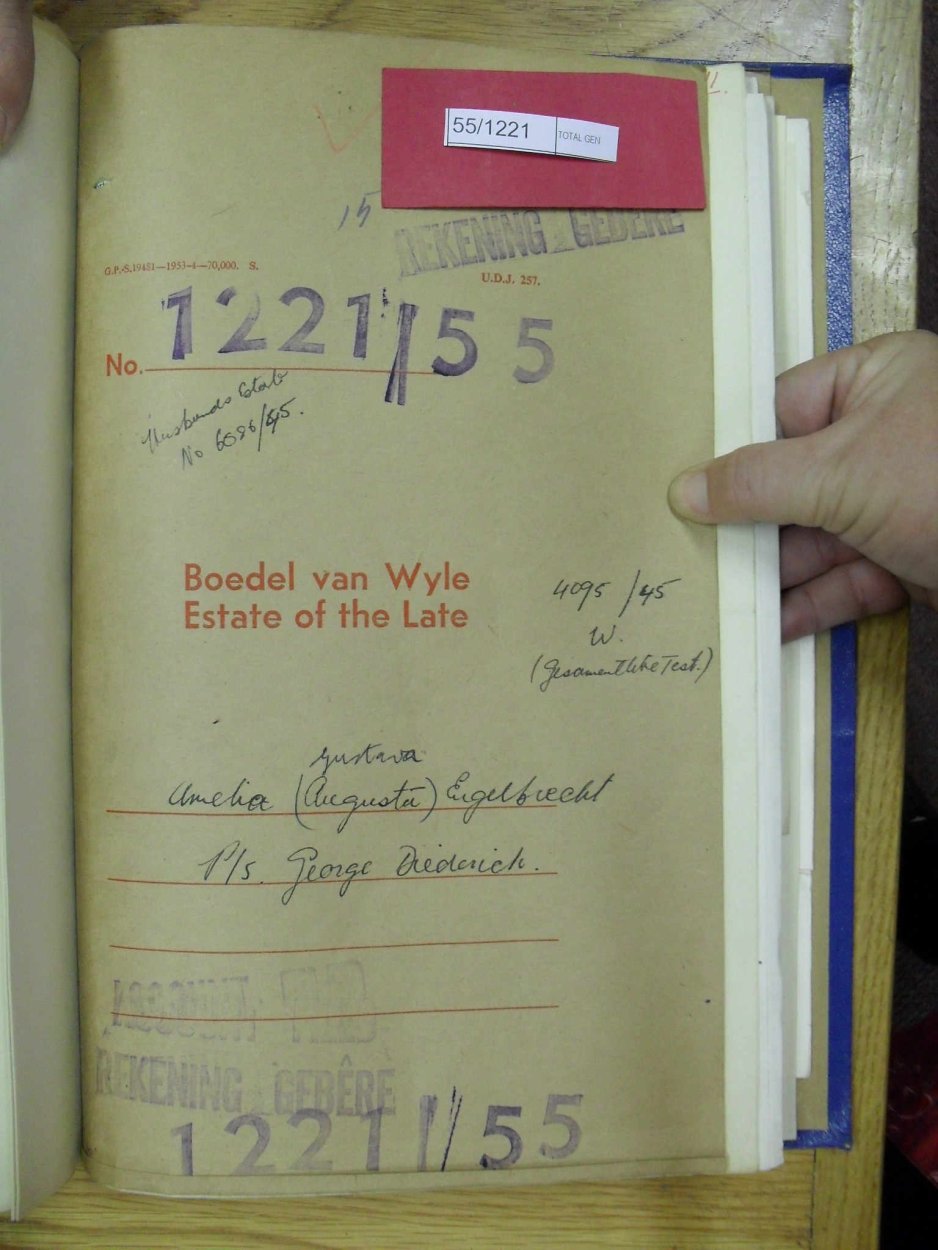 55/1221 TOTAL GEN
15
REKENING GEBÊRE
G.P.-S.19481—1953-4—70,000. S.
U.D.J. 257.
No. 1221/55
Husbands Estate
No 6086/45.
Boedel van Wyle
Estate of the Late
4095/45
W.
(Gesamentlike Test.)
Gustava
Amelia (Augusta) Engelbrecht
P/s. George Diederich.
ACCOUNT FILED
REKENING GEBÊRE
1221/55